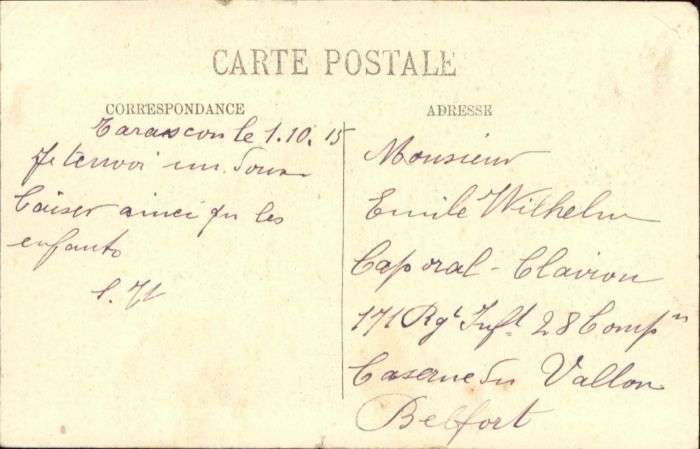 CARTE POSTALE
CORRESPONDANCE
Tarascon le 1.10.15
Je t'envoi un doux
baiser ainci qu les
enfants
ADRESSE
Monsieur
Emile Wilhelm
Caporal-Clairon
171 Rgt Inft 28 Compn
Caserne du Vallon
Belfort